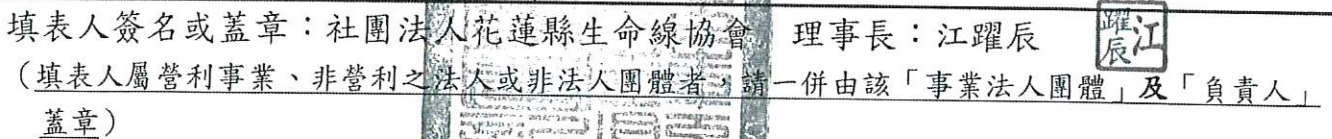 填表人簽名或蓋章：社團法人花蓮縣生命線協會　理事長：江躍辰　江躍辰
（填表人屬營利事業、非營利之法人或非法人團體者，請一併由該「事業法人團體」及「負責人」
蓋章）